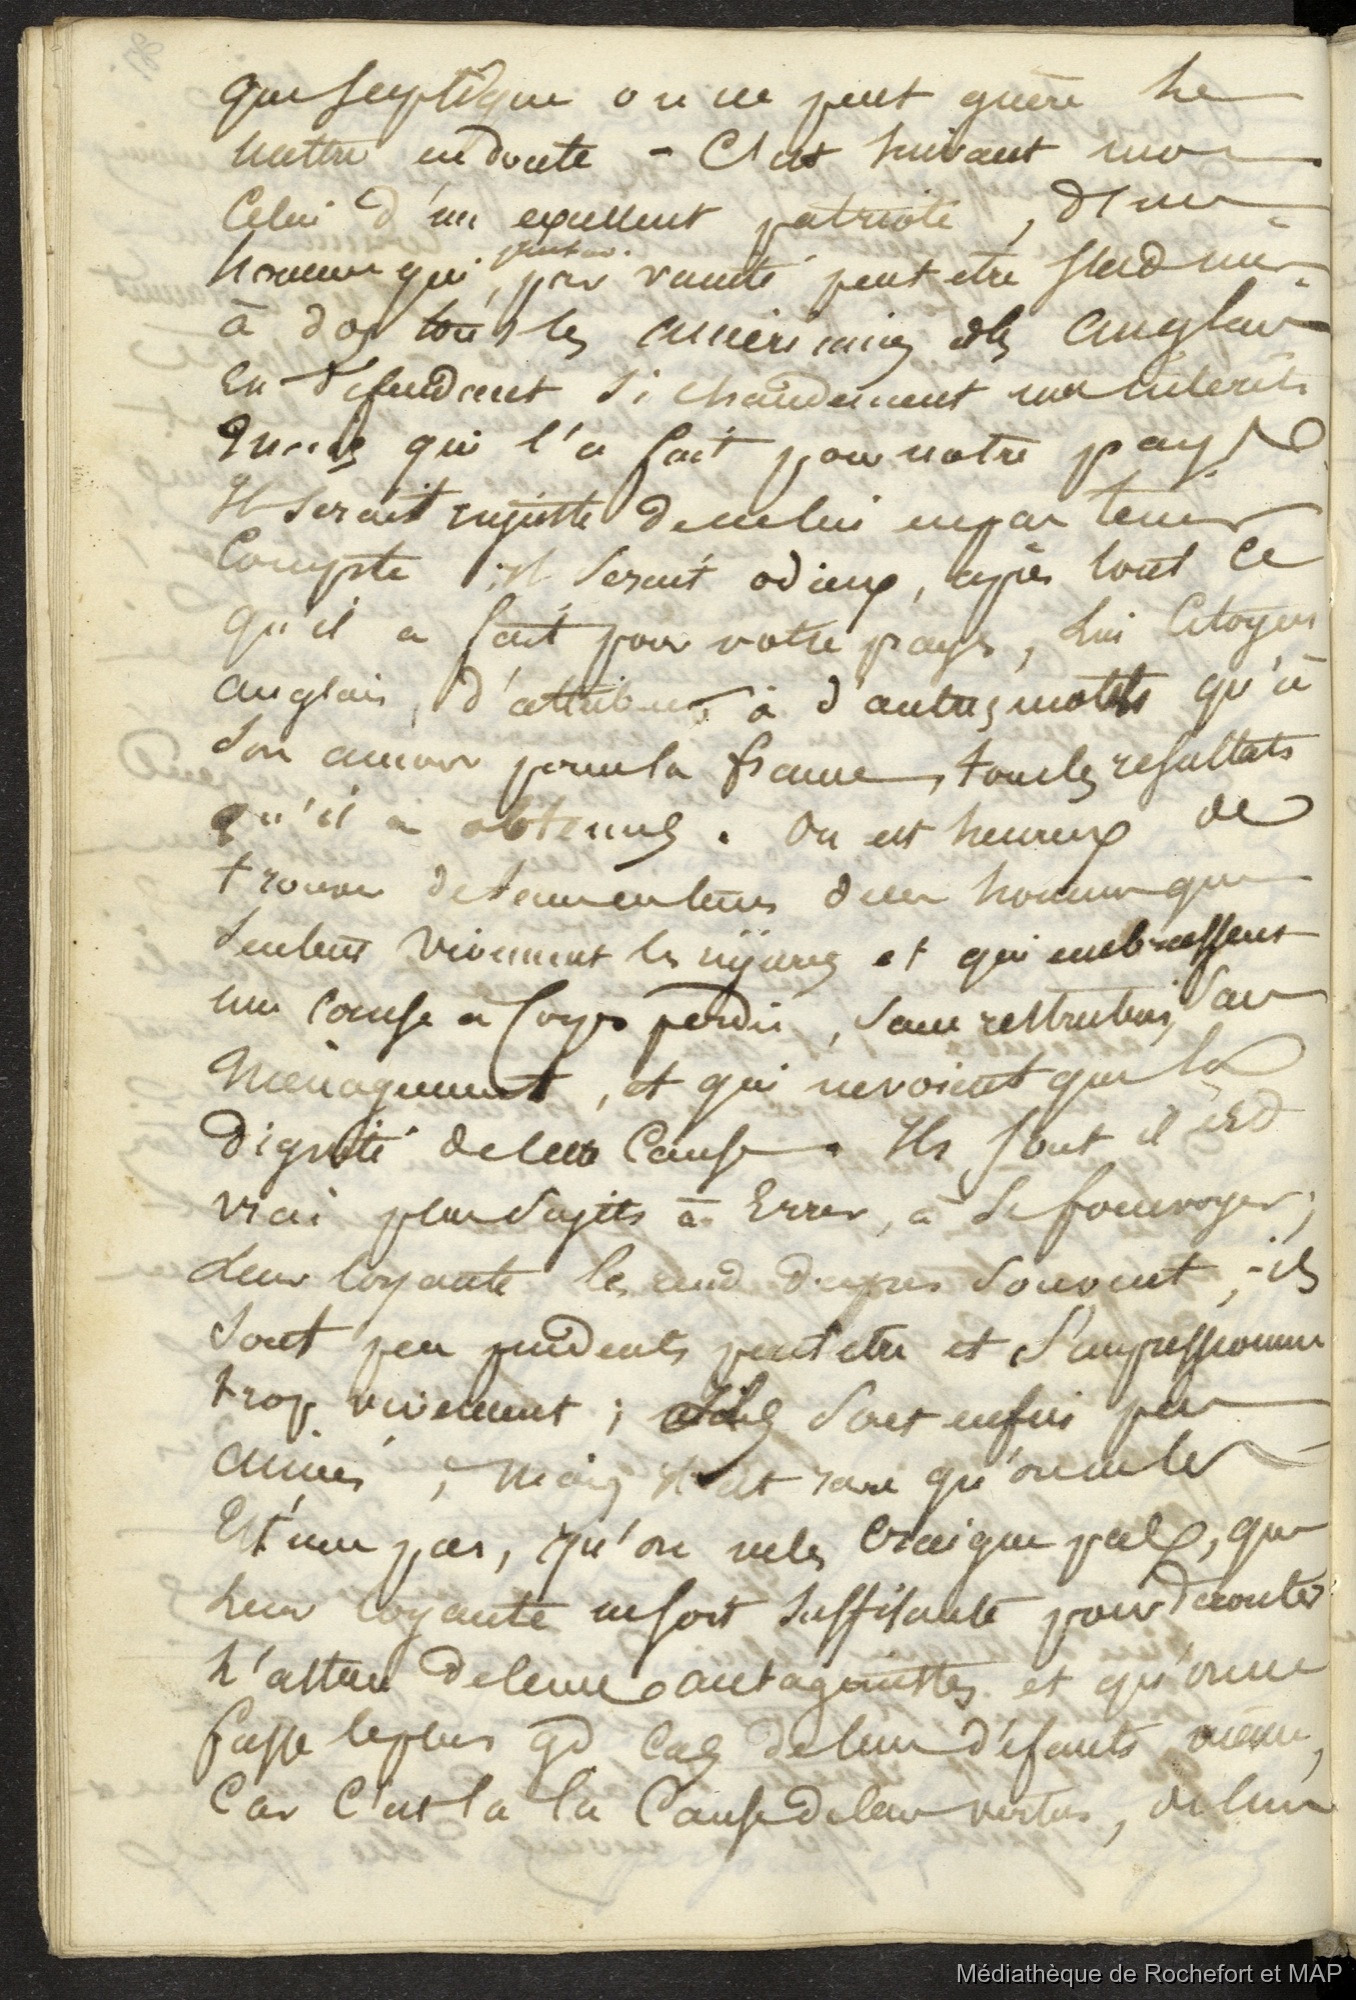 que sceptique on ne peut guère le
mettre en doute - C'est suivant moi
Celui d'un excellent patriote, d'un
homme qui, par vanité peut etre s'est mis
à dos tous les américains et les anglais
En défendant si chaudement nos interets
Mais qui l'a fait pour notre pays
Il serait injuste de ne lui en pas tenir
Compte ; il serait odieux, après tout ce
qu'il a fait pour notre pays, lui Citoyen
anglais, d'attribuer à d'autres motifs qu'à
son amour pour la france, tous les resultats
qu'il a obtenus. On est heureux de
trouver de temps en temps des hommes qui
sentent vivement les injures et qui embrassent
une cause a corps perdu, sans restrictions, sans
Ménagement, et qui ne voient que la
dignité de leur Cause. Ils sont il est
vrai plus sujets à Errer, à se fourvoyer ;
leur loyauté les rend dupes souvent, ils
sont peu prudents peut etre et s'impressionnent
trop vivement ; ils sont enfin peu
aimés, Mais il est rare qu'on ne les
Estime pas, qu'on ne les craigne pas, que
leur loyauté ne soit suffisante pour dérouter
l'astuce de leurs antagonistes et qu'on ne
fasse le plus gd cas de leurs défauts même,
Car C'est là la Cause de leurs vertus, de leur
Médiathèque de Rochefort et MAP